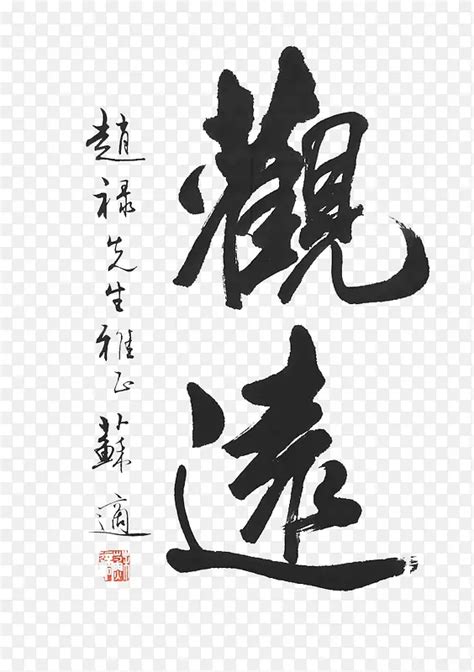 觀遠
趙祿先生雅正蘇適